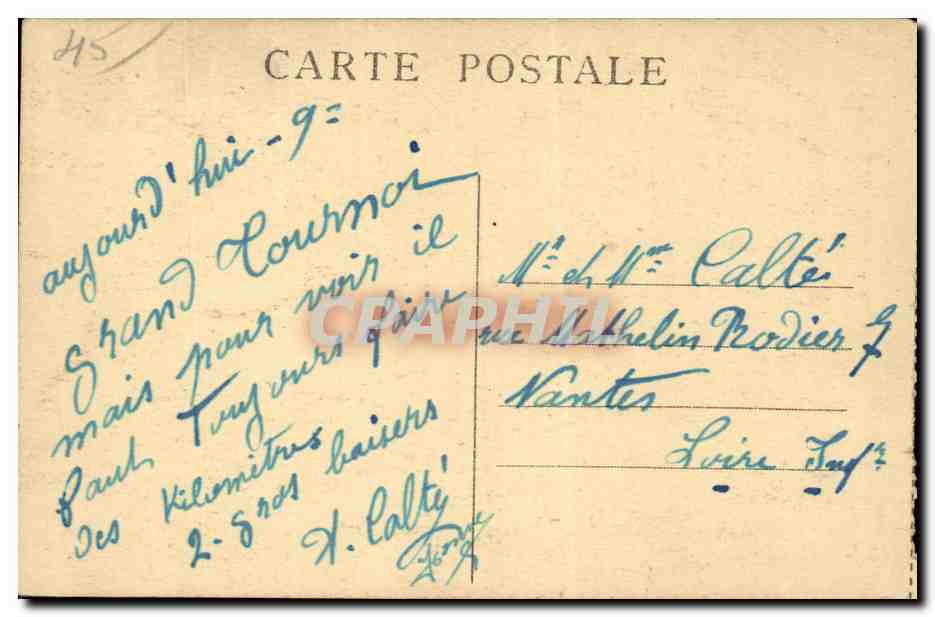 45
CARTE POSTALE
aujourd'hui - 9=
Grand Tournoi
mais pour voir il
faut Toujours faire
des Kilomètres
2 - Gros baisers
A. Calté
Mr et Mme Calté
rue Mathelin Rodier 7
Nantes
Loire Infre
CPAPHIL